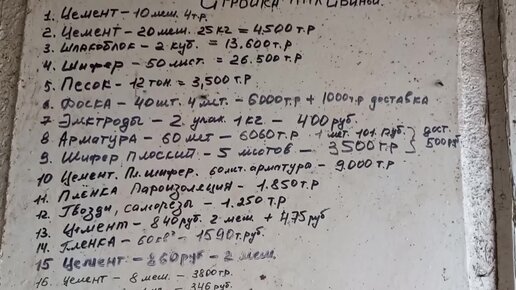 Стройка
1. Цемент – 10 меш. 4 т.р.
2. Цемент – 20 меш. 25 кг = 4.500 т.р
3. Шлакоблок – 2 куб. = 13.600 т.р
4. Шифер – 50 лист. = 26.500 т.р
5. Песок – 12 тон = 3,500 т.р
6. Фоска – 40 шт. 4 мет. – 6000 т.р + 1000 т.р доставка
7. Электроды – 2 упак. 1 кг. – 400 руб.
8. Арматура – 60 мет – 6060 т.р. 1 мет. 101 руб. } дост.
9. Шифер плоский – 5 листов – 3500 т.р } 500 руб
10 Цемент. Пл. шифер. 60 мет. арматура – 9.000 т.р
11. Плёнка Пароизоляция – 1.850 т.р
12. Гвозди, саморезы – 1.250 т.р
13. Цемент – 840 руб. 2 меш + 475 руб
14. Пленка – 60 кв² – 1590 т.руб.
15 Цемент – 860 руб – 2 меш.
16. Цемент – 8 меш. – 3800 т.р.
= 346 руб